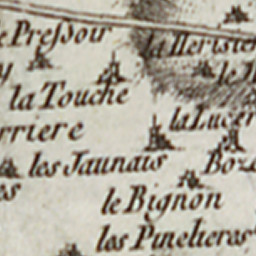 e Pressoir
la Herisie
la Touche
rriere
la Lucer
les Jaunais
Boz
os
le Bignon
los Pinelieros